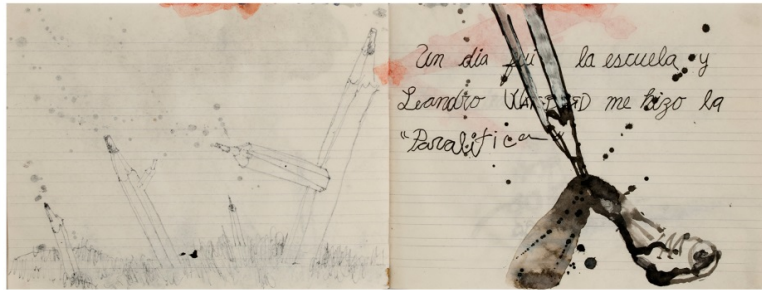 Un día fui la escuela y
Leandro me hizo la
"Paralítica"